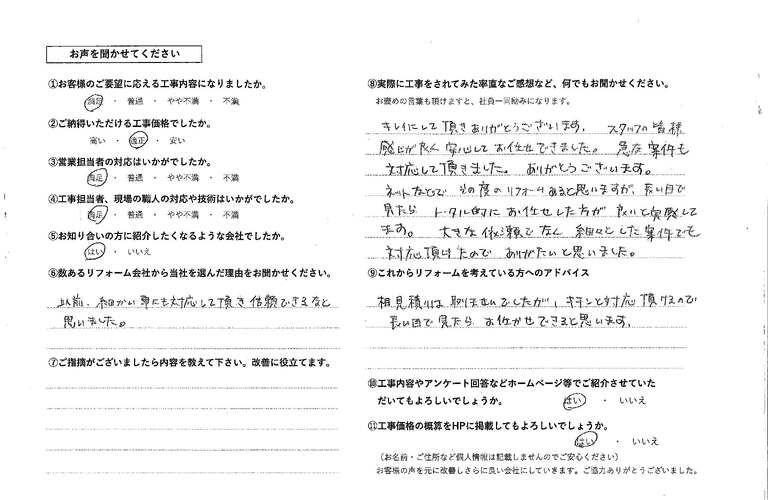 お声を聞かせてください
①お客様のご要望に応える工事内容になりましたか。
満足 ・ 普通 ・ やや不満 ・ 不満
②ご納得いただける工事価格でしたか。
高い ・ 適正 ・ 安い
③営業担当者の対応はいかがでしたか。
満足 ・ 普通 ・ やや不満 ・ 不満
④工事担当者、現場の職人の対応や技術はいかがでしたか。
満足 ・ 普通 ・ やや不満 ・ 不満
⑤お知り合いの方に紹介したくなるような会社でしたか。
はい ・ いいえ
⑥数あるリフォーム会社から当社を選んだ理由をお聞かせください。
以前、細かい事にも対応して頂き信頼できるなと
思いました。
⑦ご指摘がございましたら内容を教えて下さい。改善に役立てます。
⑧実際に工事をされてみた率直なご感想など、何でもお聞かせください。
お褒めの言葉も頂けますと、社員一同励みになります。
キレイにして頂きありがとうございます。スタッフの皆様
感じが良く安心してお任せできました。急な案件も
対応して頂きました。ありがとうございます。
ネットなどで その度のリフォームあると思いますが、長い目で
見たら トータル的に お任せした方が 良いと実感して
ます。 大きな依頼でなく 細々とした案件でも
対応頂けたので ありがたいと思いました。
⑨これからリフォームを考えている方へのアドバイス
相見積りは取りませんでしたが、キチンと対応頂けるので
長い目で見たら お任せできると思います。
⑩工事内容やアンケート回答などホームページ等でご紹介させていた
だいてもよろしいでしょうか。 はい ・ いいえ
⑪工事価格の概算をHPに掲載してもよろしいでしょうか。
はい ・ いいえ
（お名前・ご住所など個人情報は記載しませんのでご安心ください）
お客様の声を元に改善しさらに良い会社にしていきます。ご協力ありがとうございました。